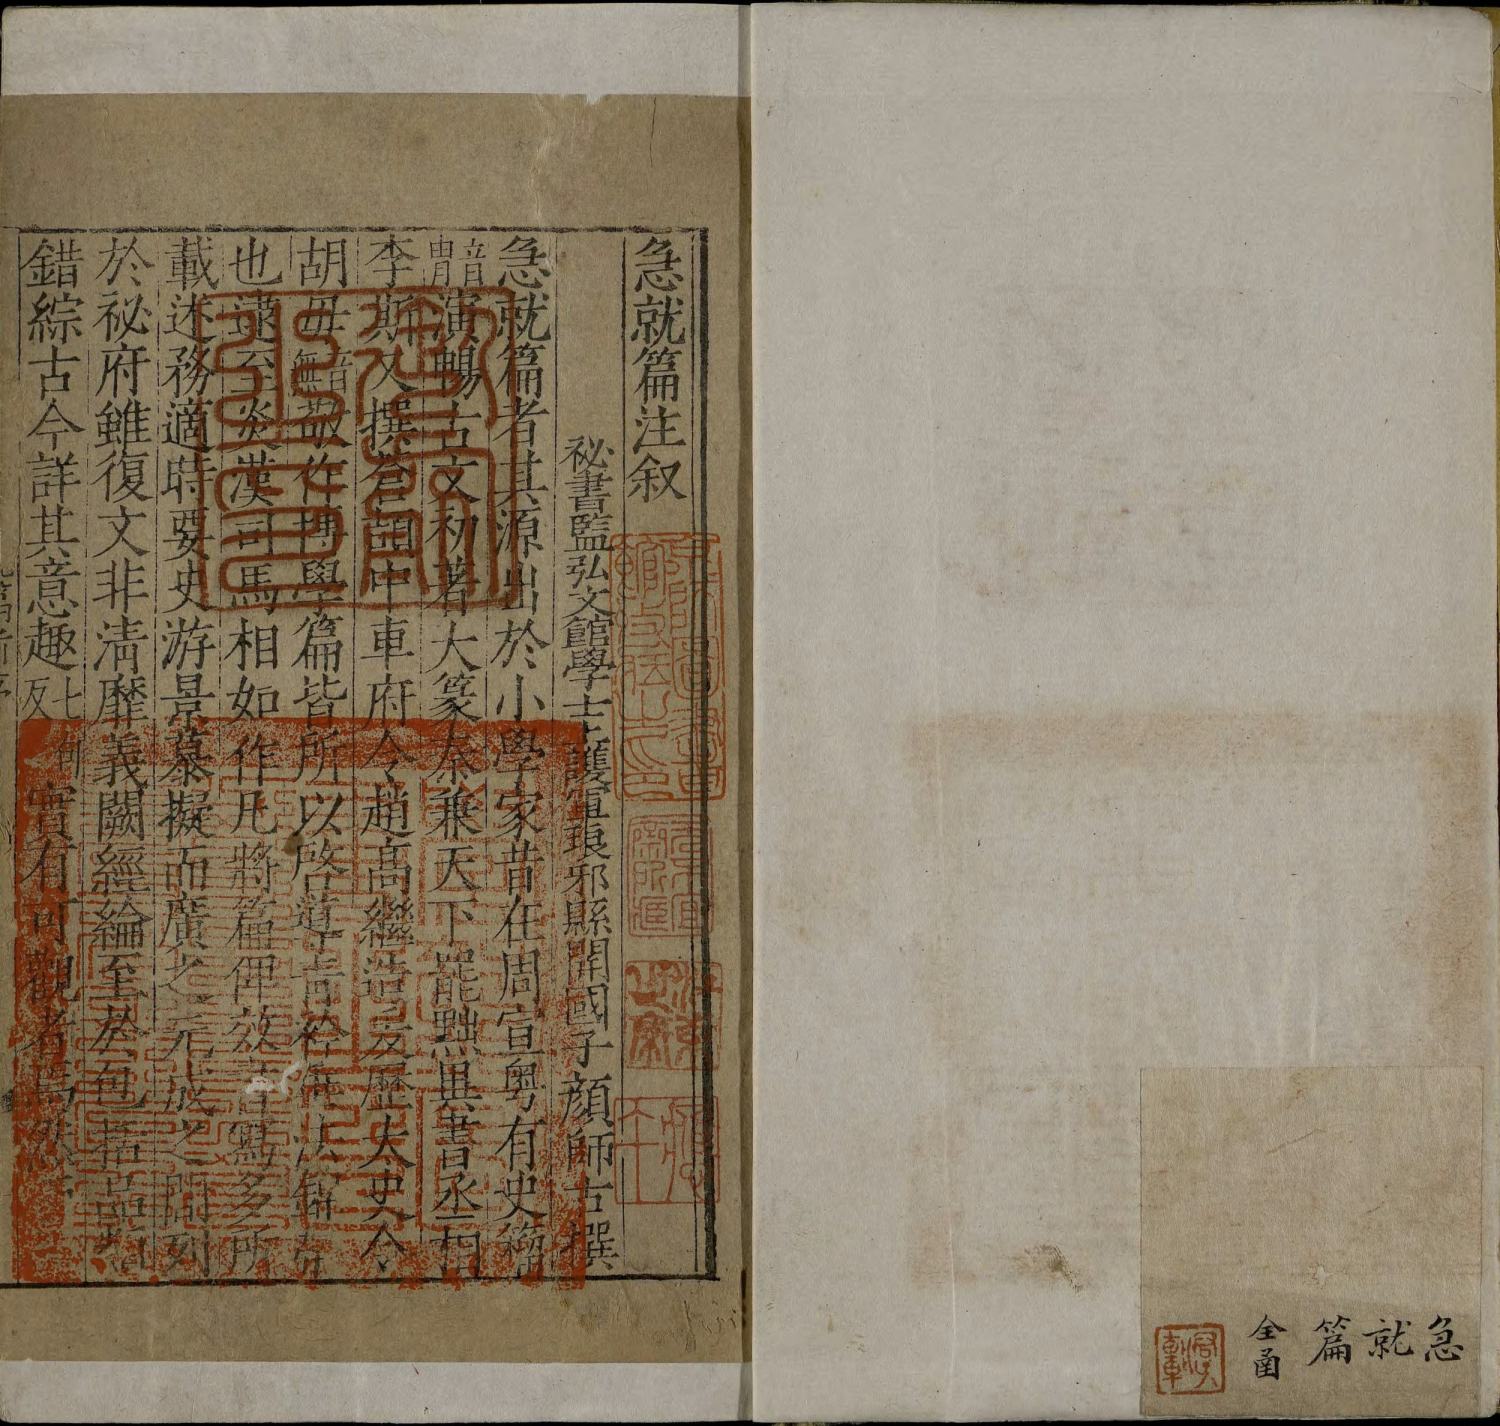 急就篇
全函
急就篇注叙
秘書監弘文館學士護軍琅邪縣開國子顏師古撰
急就篇者其源出於小學家昔在周宣粤有史籀
音胄演暢古文初著大篆秦兼天下罷黜異書丞相
李斯又撰蒼頡中車府令趙高繼造爰歷太史令
胡毋音無敬作博學篇皆所以啓導青衿垂法錦
也逮至炎漢司馬相如作凡將篇俾效書寫多所
載述務適時要史游景慕擬而廣之元成之間列
於祕府雖復文非清靡義闕經綸至於包括品類
錯綜古今詳其意趣七反實有可觀者焉然